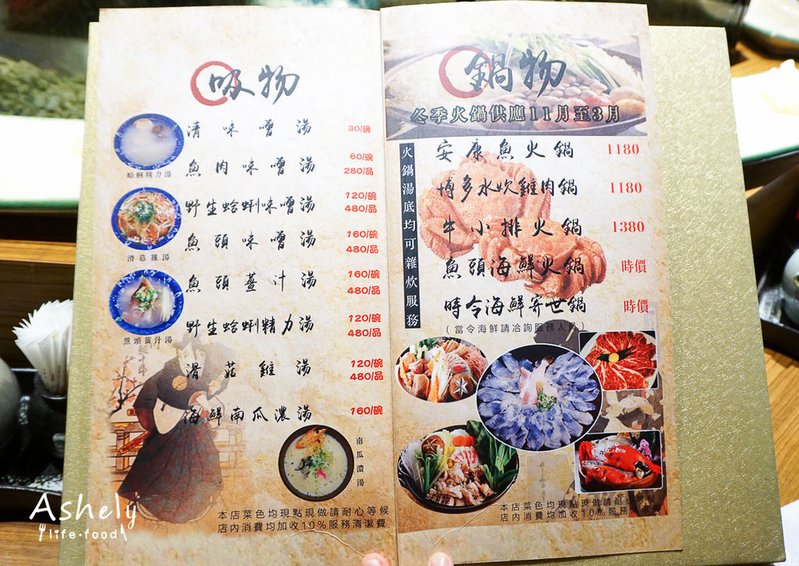 吸物
清味噌湯 30/碗
魚肉味噌湯 60/碗 280/品
野生蛤蜊味噌湯 120/碗 480/品
魚頭味噌湯 160/碗 480/品
魚頭薑汁湯 160/碗 480/品
野生蛤蜊精力湯 120/碗 480/品
滑菇雞湯 120/碗 480/品
海鮮南瓜濃湯 160/碗
蛤蜊精力湯
滑菇雞湯
魚頭薑汁湯
南瓜濃湯
本店菜色均現點現做請耐心等候
店內消費均加收10%服務清潔費
鍋物
冬季火鍋供應11月至3月
火鍋湯底均可雜炊服務
安康魚火鍋 1180
博多水炊雞肉鍋 1180
牛小排火鍋 1380
魚頭海鮮火鍋 時價
時令海鮮寄世鍋 時價
(當令海鮮請洽詢服務人員)
本店菜色均現點現做請耐心
店內消費均加收10%服務
Ashely
life·food